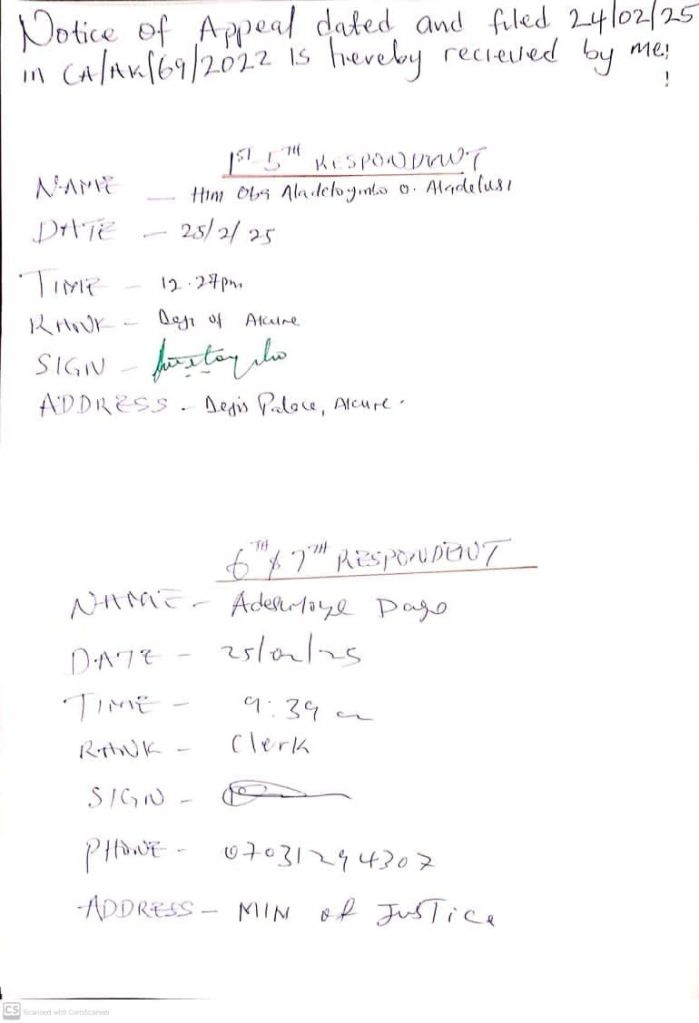 Notice of Appeal dated and filed 24/02/25
in CA/AK/69/2022 is hereby recieved by me;
!
1ST 5TH RESPONDENT
NAME – HIM Oba Aladetoyinbo O. Aladelusi
DATE – 25/2/25
TIME – 12.27pm
RANK – Deji of Akure
SIGN –
ADDRESS - Dejis Palace, Akure.
6TH & 7TH RESPONDENT
NAME - Dayo
DATE - 25/02/25
TIME - 9:39 a
RANK - Clerk
SIGN -
PHONE - 07031294307
ADDRESS - MIN of Justice
CS Scanned with CamScanner